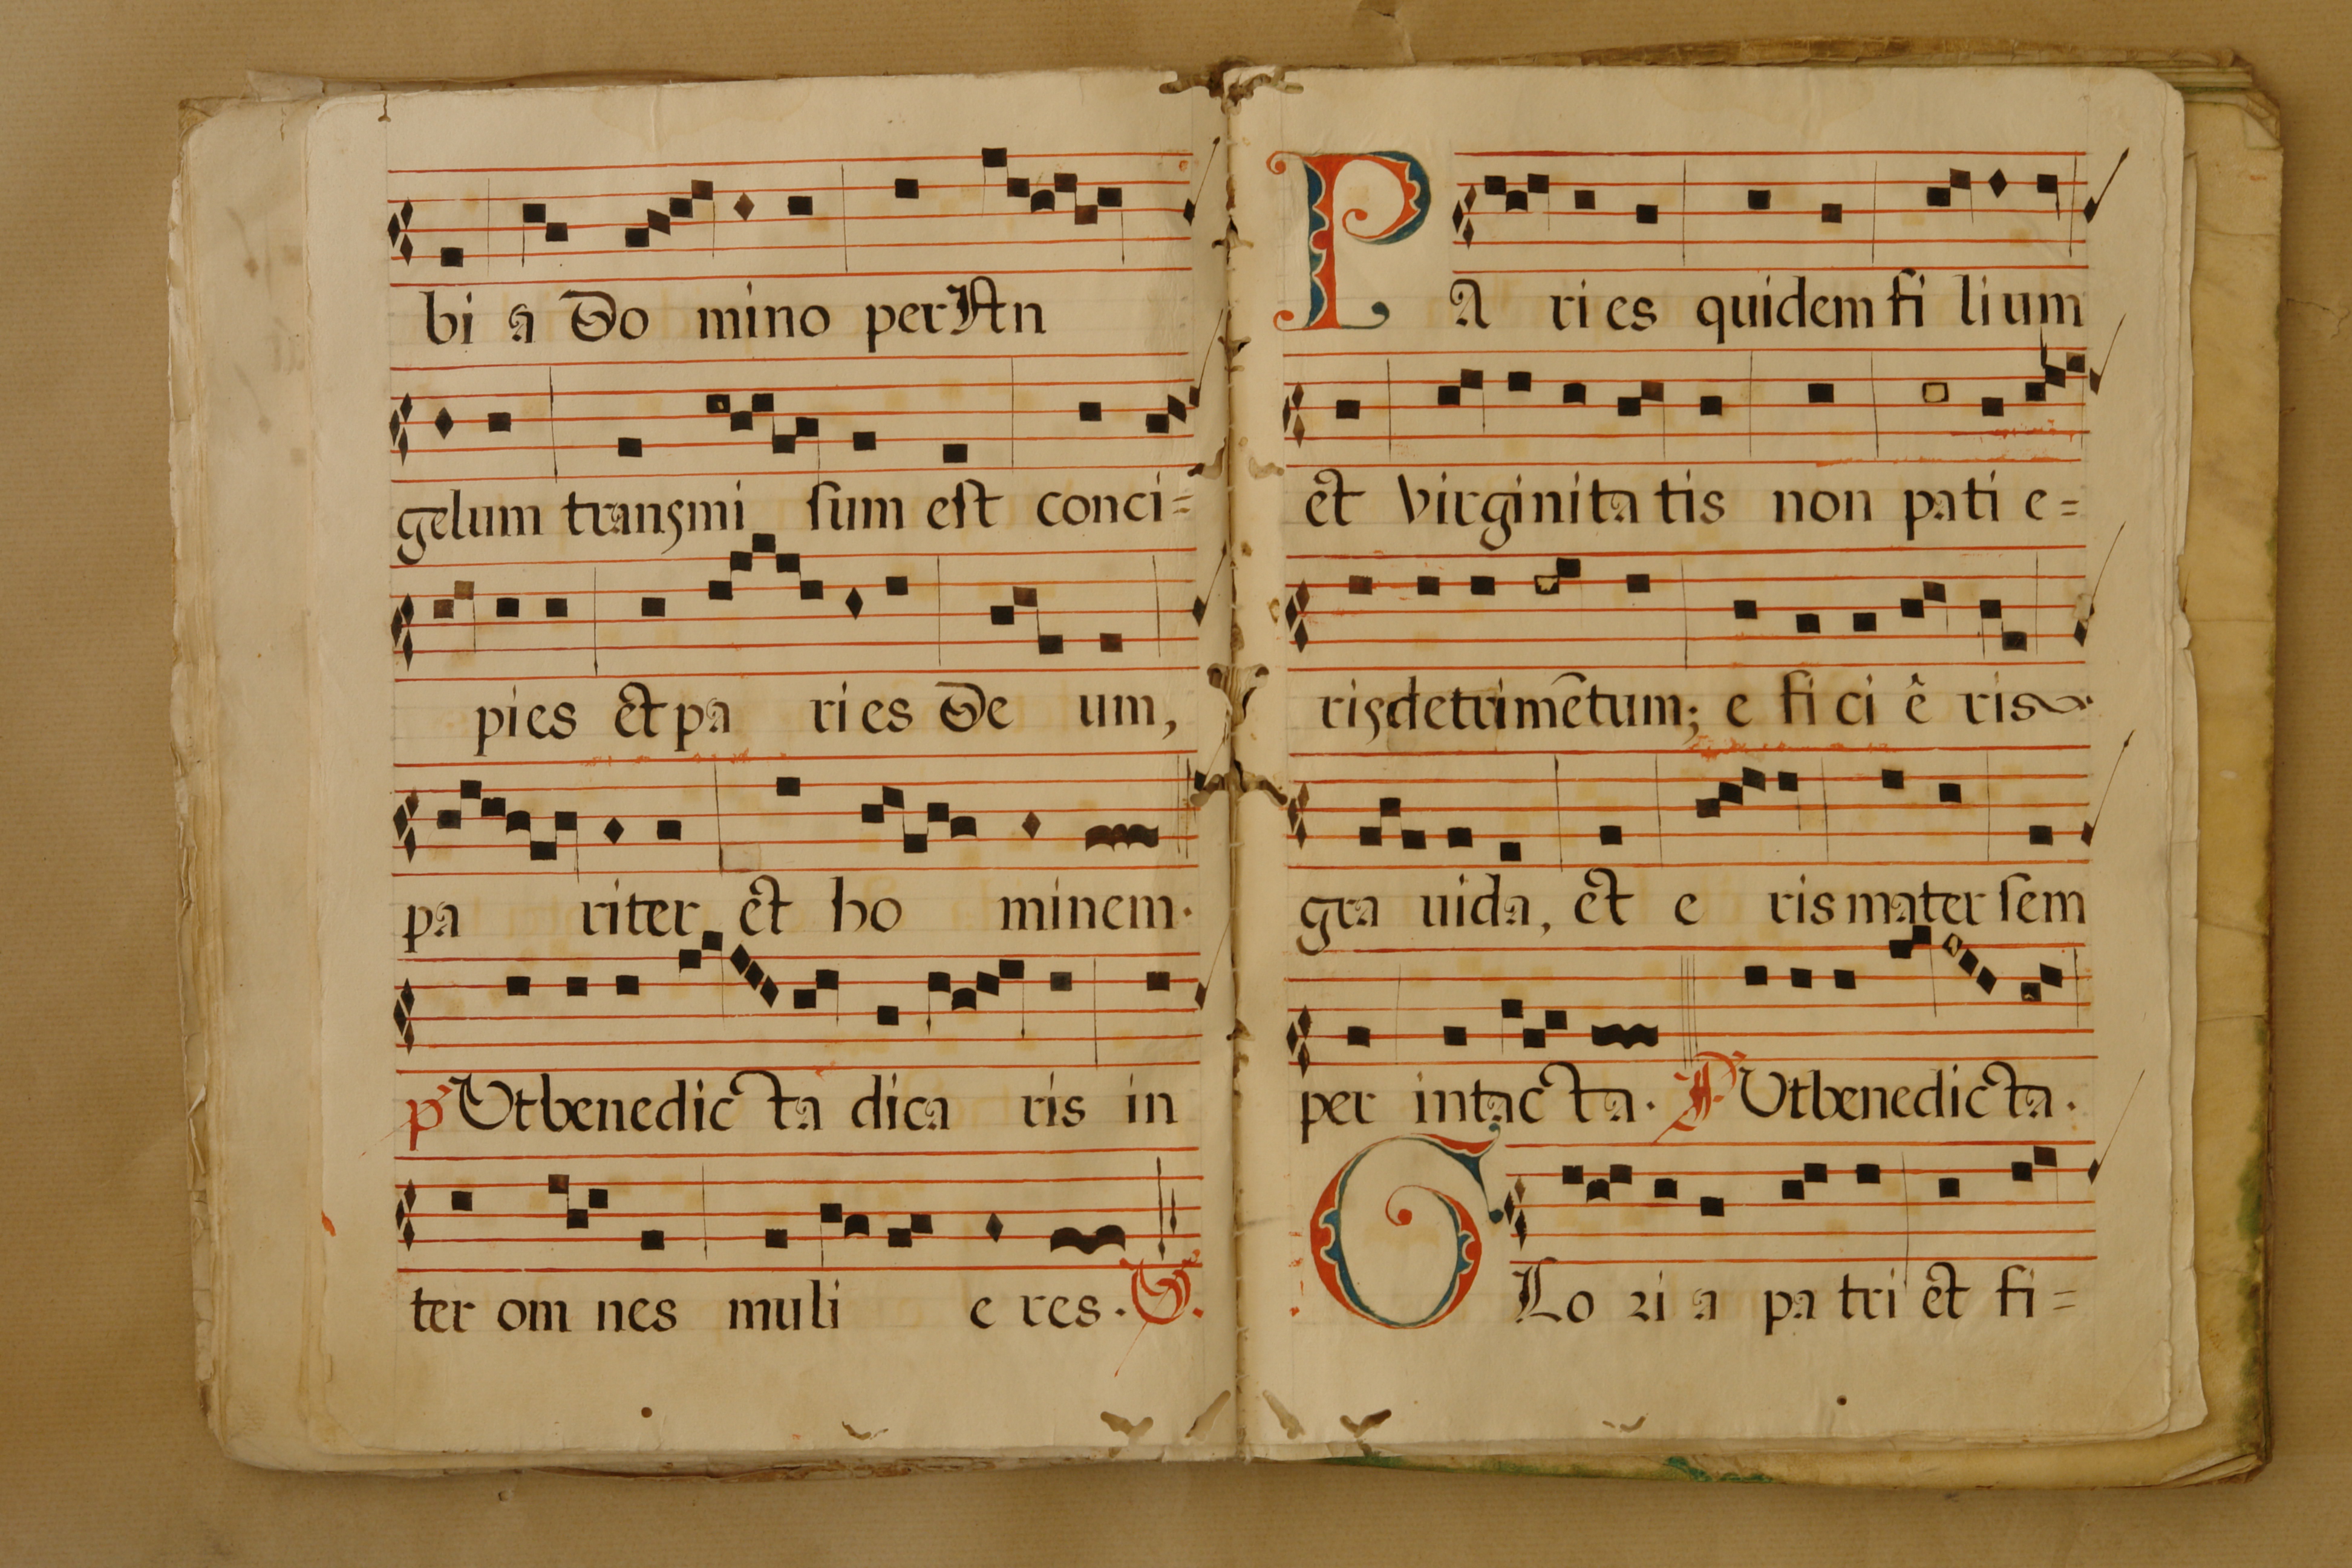 bi a Do mino per An
gelum transmi sum est conci=
pies et pa ri es De um,
pa riter et ho minem.
p Ut benedic ta dica ris in
ter om nes muli e res. V.
PA ri es quidem fi lium
et virginita tis non pati e=
ris detrimētum; e fi ci ê ris
gra uida, et e ris mater sem
per intac ta. P Ut benedic ta.
GLo ri a pa tri et fi=